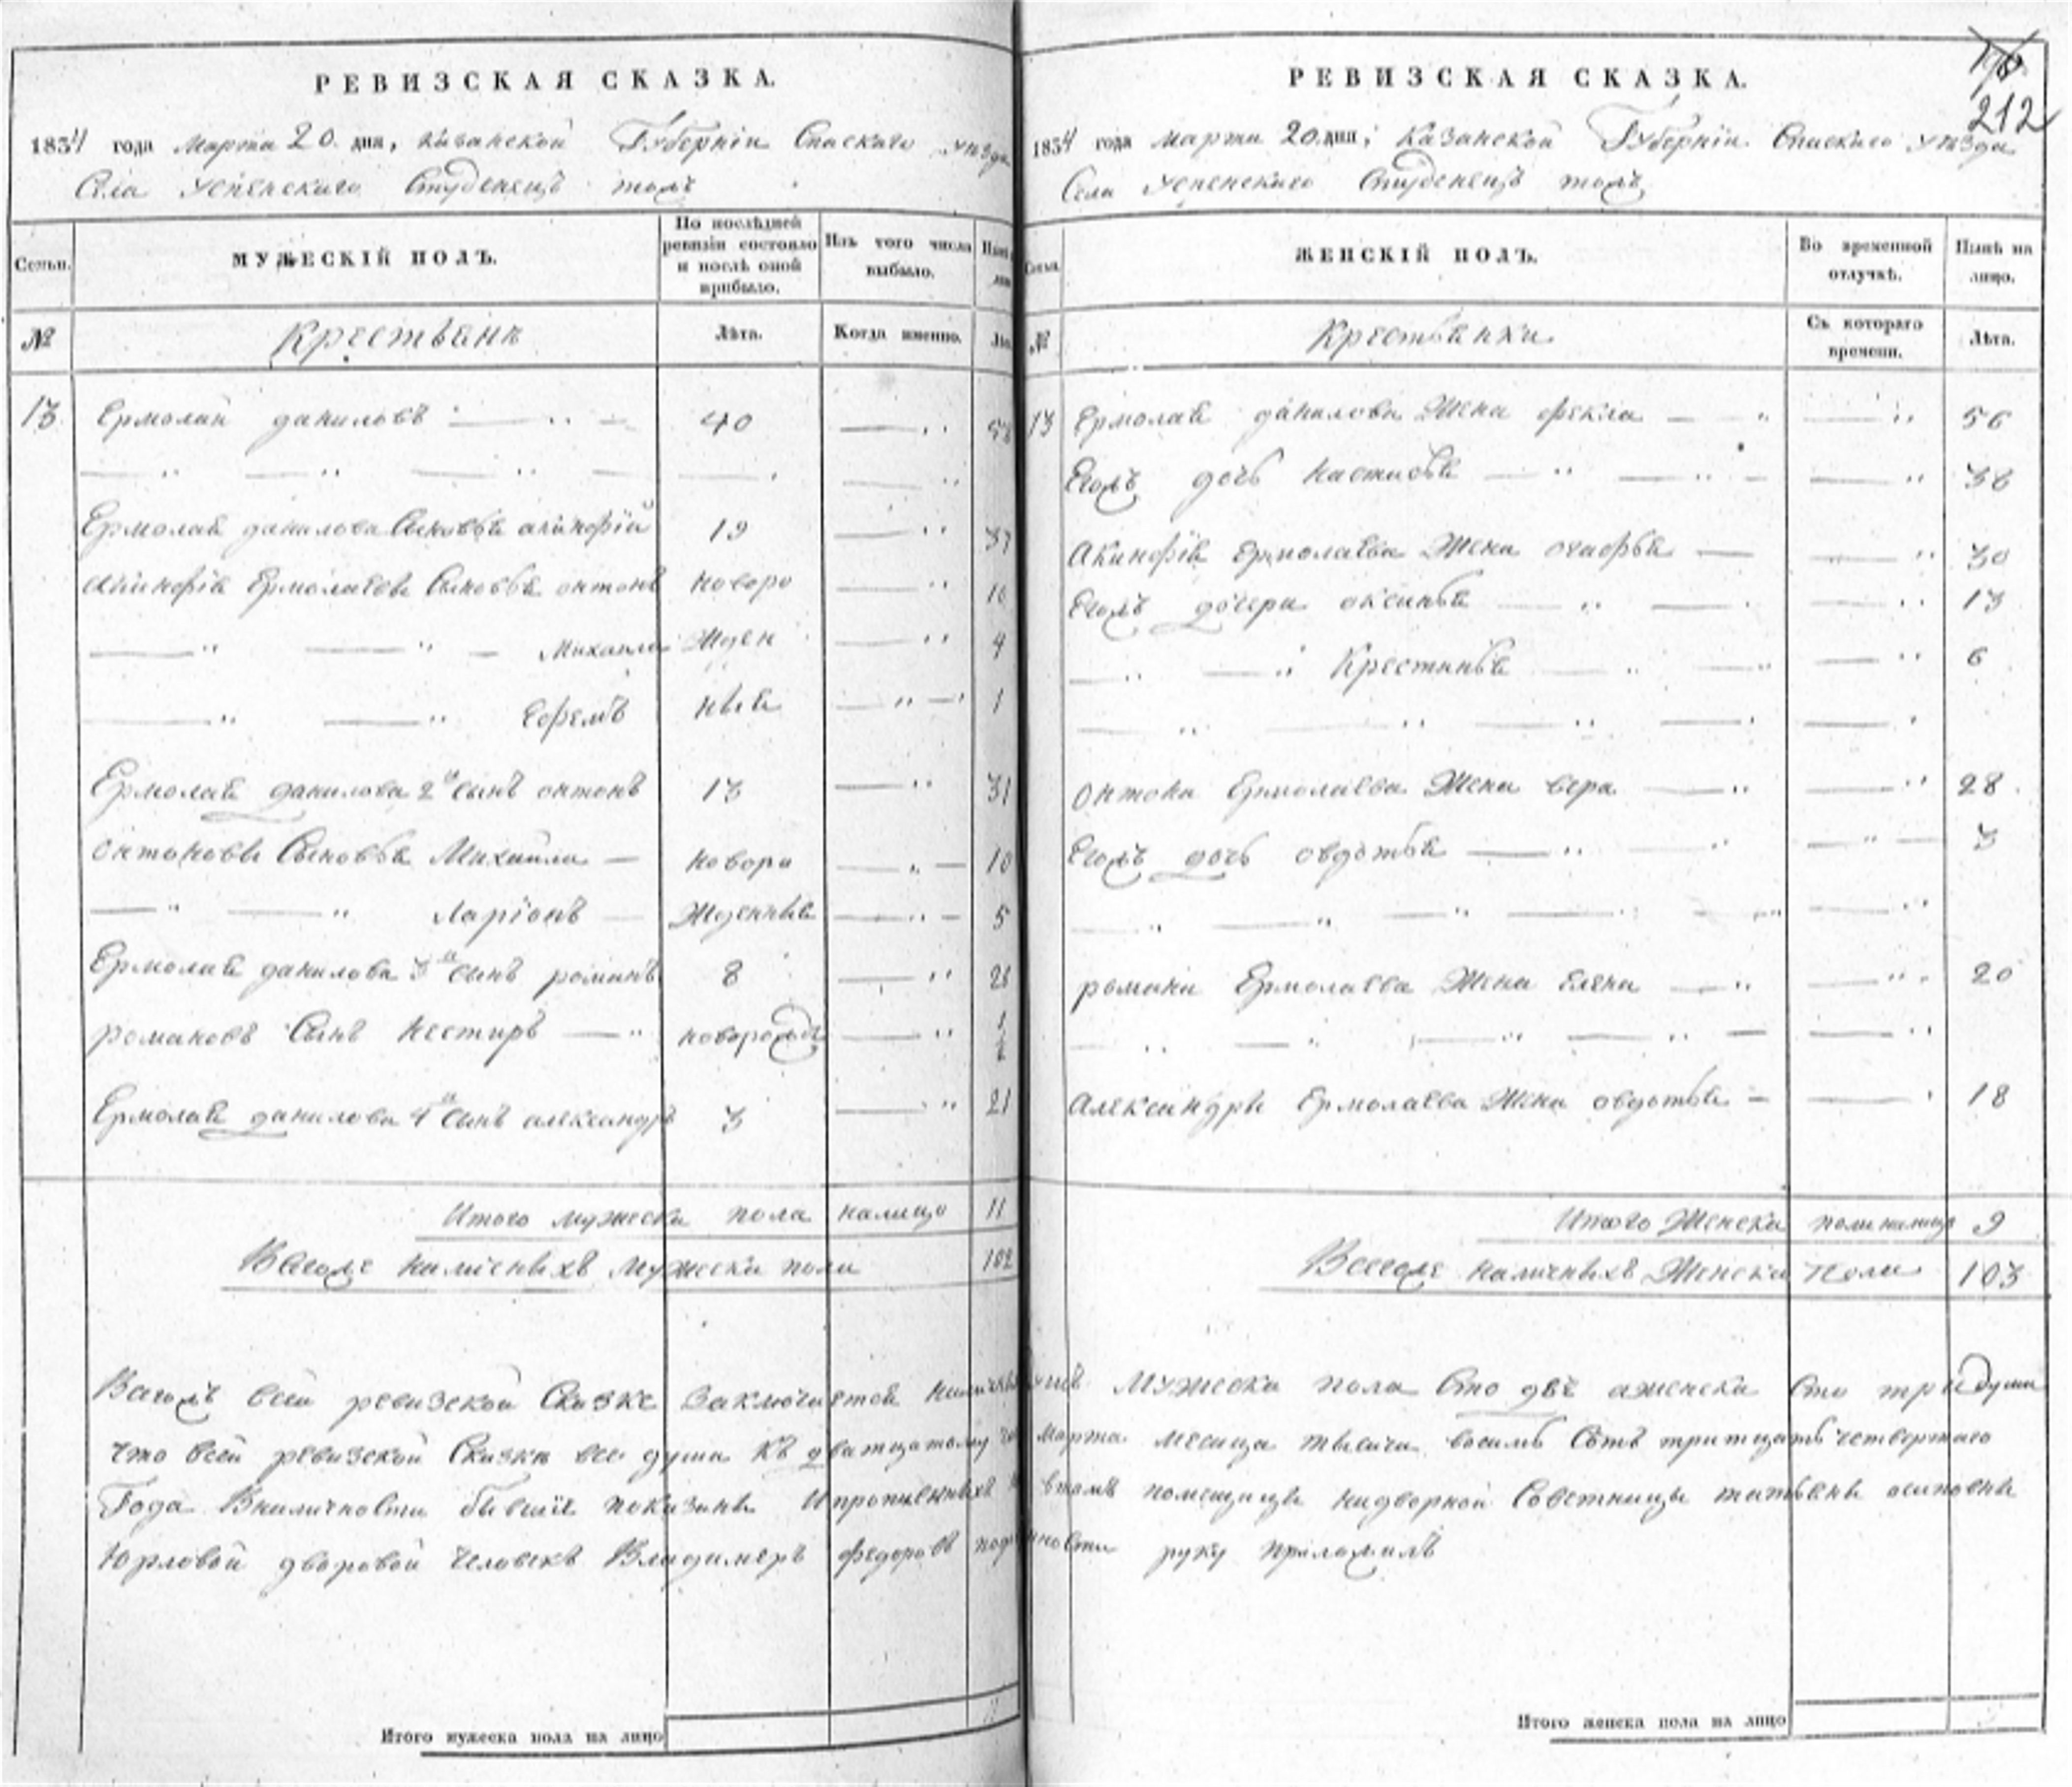 РЕВИЗСКАЯ СКАЗКА.
1834 года марта 20. дня, казанской Губернiи Спаскаго уезда
Села Успенскаго Студенецъ тожъ
Семьи.
МУЖЕСКIЙ ПОЛЪ.
По послѣдней ревизiи состояло и послѣ оной прибыло.
Изъ того числа выбыло.
№
Крестьянъ
Лѣта.
Когда именно.
13 Ермолай даниловъ 40
Ермолая данилова Сыновья акинфiй 19 37
Акинфiя Ермолаева Сыновья онтонъ новоро 10
Михаила жден 4
Ефремъ ныя 1
Ермолая данилова 2й сынъ онтонъ 13 31
Онтоновы Сыновья Михаила новоро 10
Ларiонъ жденныя 5
Ермолая данилова 3й сынъ романъ 8 26
романовъ Сынъ Нестиръ новорожд 1/2
Ермолая данилова 4й сынъ александръ 3 21
Итого мужеска пола налицо 11
Всегоже наличныхъ мужеска пола 102
РЕВИЗСКАЯ СКАЗКА.
212
1834 года марта 20. дня, Казанской Губернiи Спаскаго уезда
Села Успенскаго Студенецъ тожъ
ЖЕНСКIЙ ПОЛЪ.
Во временной отлучкѣ.
Нынѣ на лицо.
№
Крестьянки
Съ котораго времени.
Лѣта.
13 Ермолая данилова Жена фекла 56
Егожъ дочь настасья 38
Акинфiя Ермолаева Жена 30
Егожъ дочери оксинья 13
Крестинья 6
Онтона Ермолаева Жена вера 28
Егожъ дочь овдотья 3
романа Ермолаева Жена Елена 20
Александры Ермолаева Жена овдотья 18
Итого Женска пола налицо 9
Всегоже наличныхъ Женска пола 103
Всегожъ всей ревизской Сказке Заключается мужеска пола Сто две аженска Сто три души
что всей ревизской Сказки все души къ дватцатому марта месяца тысяча восимь Сотъ тритцать четвертаго
Года Вналичности бывшiе показаны И пропиенныхъ втомъ помещицы надворной Советницы татьяны осиповны
Юрловой дворовой человекъ Владимеръ федоровъ руку приложилъ
Итого мужеска пола на лицо
Итого женска пола на лицо